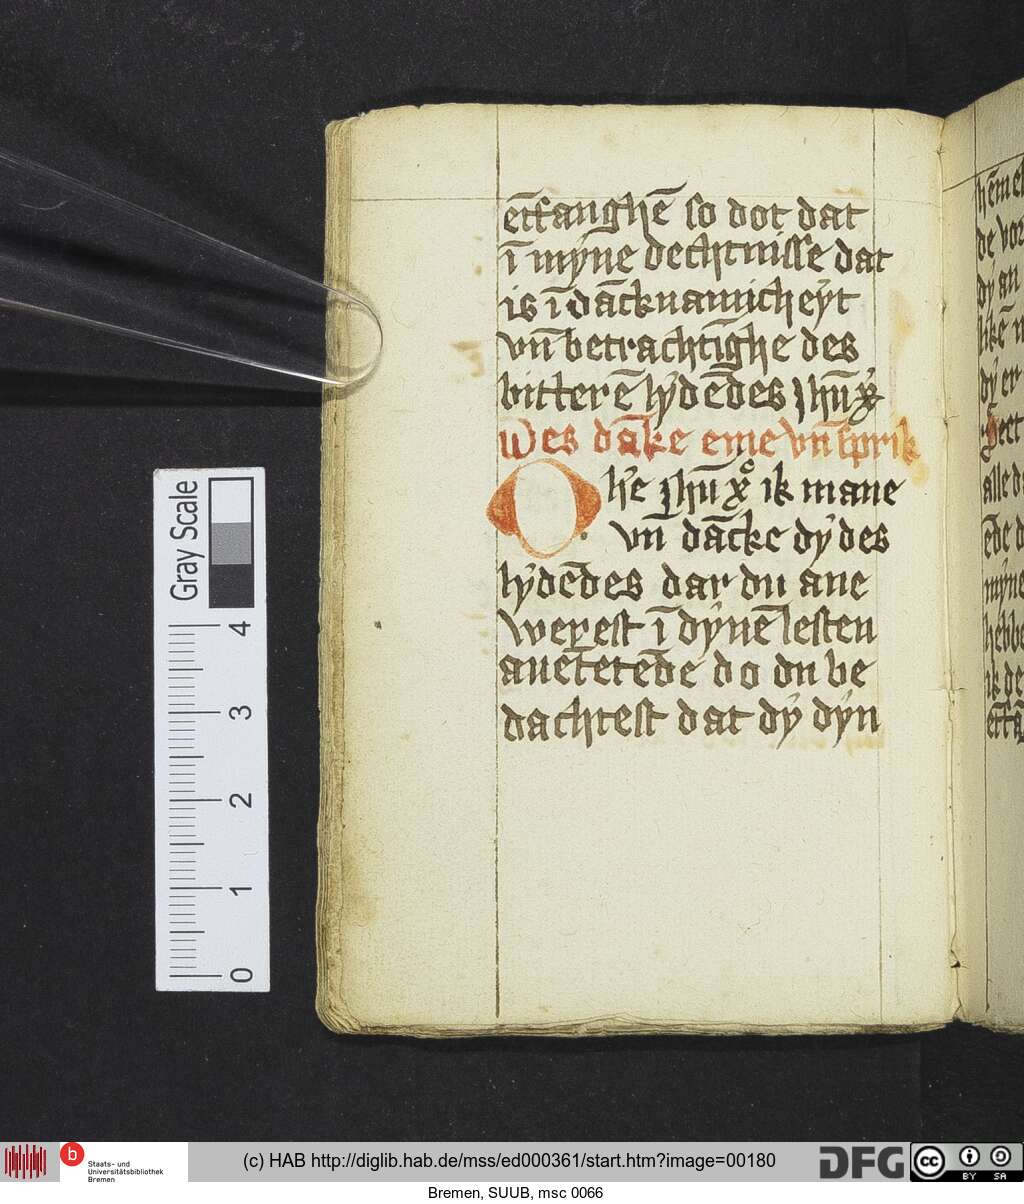 ētfanghē so dot dat
ī mẏne dechtnisse dat
is ī dācknamicheẏt
vn̄ betrachtīghe des
bitterē lẏdēdes jhū xp̄
wes dāke eme vn̄ sprik
O hˀe jhū x̊ ik mane
vn̄ dācke dẏ des
lẏdēdes dar du ane
werest ī dẏnē lesten
auēt etēde do du be
dachtest dat dẏ dẏn
hēme
de vor
dẏ an
likē
dẏ er
alle d
ēde d
mẏne
hebbe
ik de
Gray Scale
4
3
2
1
0
b
Staats- und
Universitätsbibliothek
Bremen
(c) HAB http://diglib.hab.de/mss/ed000361/start.htm?image=00180
DFG
cc
BY
SA
Bremen, SUUB, msc 0066